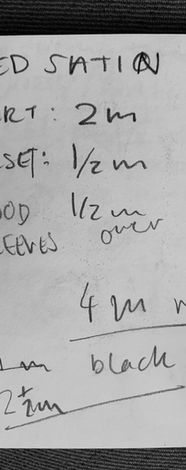 ED SATIN
RT: 2m
SET: 1/2 m
OOD 1/2 m
EEVES over
4 m
m black